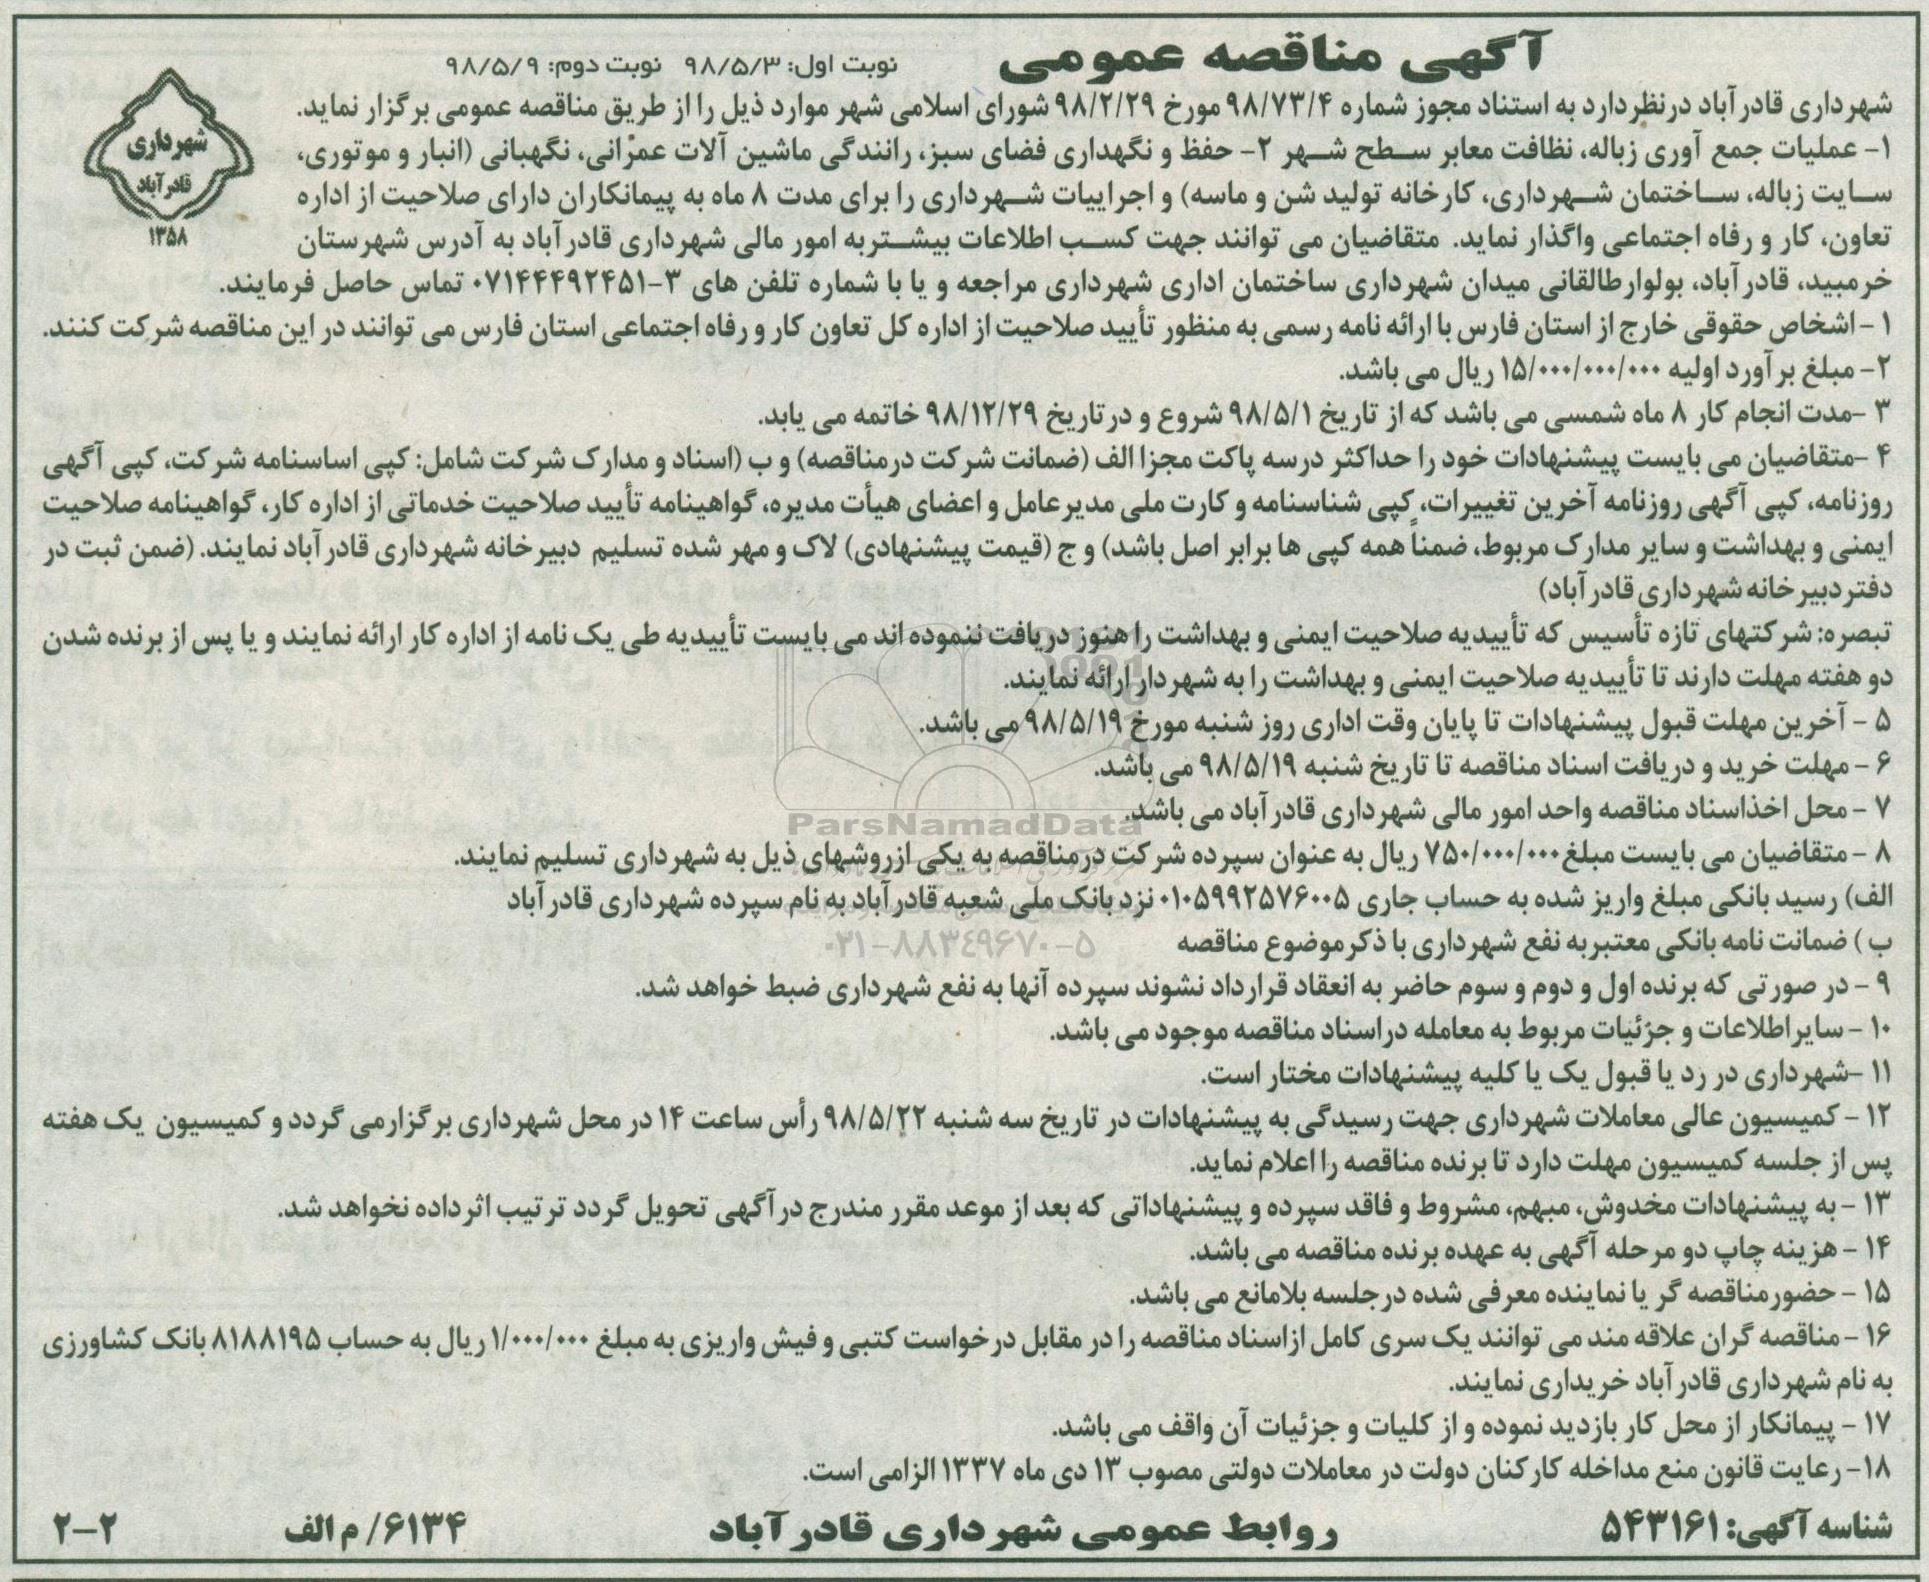 آگهی مناقصه عمومی
نوبت اول: ۹۸/۵/۳ نوبت دوم: ۹۸/۵/۹
شهرداری
قادرآباد
۱۳۵۸
شهرداری قادرآباد درنظردارد به استناد مجوز شماره ۹۸/۷۳/۴ مورخ ۹۸/۲/۲۹ شورای اسلامی شهر موارد ذیل را از طریق مناقصه عمومی برگزار نماید.
۱- عملیات جمع آوری زباله، نظافت معابر سطح شهر ۲- حفظ و نگهداری فضای سبز، رانندگی ماشین آلات عمرانی، نگهبانی (انبار و موتوری،
سایت زباله، ساختمان شهرداری، کارخانه تولید شن و ماسه) و اجراییات شهرداری را برای مدت ۸ ماه به پیمانکاران دارای صلاحیت از اداره
تعاون، کار و رفاه اجتماعی واگذار نماید. متقاضیان می توانند جهت کسب اطلاعات بیشتربه امور مالی شهرداری قادرآباد به آدرس شهرستان
خرمبید، قادرآباد، بولوارطالقانی میدان شهرداری ساختمان اداری شهرداری مراجعه و یا با شماره تلفن های ۳-۰۷۱۴۴۴۹۲۴۵۱ تماس حاصل فرمایند.
۱ - اشخاص حقوقی خارج از استان فارس با ارائه نامه رسمی به منظور تأیید صلاحیت از اداره کل تعاون کار و رفاه اجتماعی استان فارس می توانند در این مناقصه شرکت کنند.
۲- مبلغ برآورد اولیه ۱۵/۰۰۰/۰۰۰/۰۰۰ ریال می باشد.
۳ -مدت انجام کار ۸ ماه شمسی می باشد که از تاریخ ۹۸/۵/۱ شروع و درتاریخ ۹۸/۱۲/۲۹ خاتمه می یابد.
۴ -متقاضیان می بایست پیشنهادات خود را حداکثر درسه پاکت مجزا الف (ضمانت شرکت درمناقصه) و ب (اسناد و مدارک شرکت شامل: کپی اساسنامه شرکت، کپی آگهی
روزنامه، کپی آگهی روزنامه آخرین تغییرات، کپی شناسنامه و کارت ملی مدیرعامل و اعضای هیأت مدیره، گواهینامه تأیید صلاحیت خدماتی از اداره کار، گواهینامه صلاحیت
ایمنی و بهداشت و سایر مدارک مربوط، ضمناً همه کپی ها برابر اصل باشد) و ج (قیمت پیشنهادی) لاک و مهر شده تسلیم دبیرخانه شهرداری قادرآباد نمایند. (ضمن ثبت در
دفتردبیرخانه شهرداری قادرآباد)
تبصره: شرکتهای تازه تأسیس که تأییدیه صلاحیت ایمنی و بهداشت را هنوز دریافت ننموده اند می بایست تأییدیه طی یک نامه از اداره کار ارائه نمایند و یا پس از برنده شدن
دو هفته مهلت دارند تا تأییدیه صلاحیت ایمنی و بهداشت را به شهردار ارائه نمایند.
۵ - آخرین مهلت قبول پیشنهادات تا پایان وقت اداری روز شنبه مورخ ۹۸/۵/۱۹ می باشد.
۶ - مهلت خرید و دریافت اسناد مناقصه تا تاریخ شنبه ۹۸/۵/۱۹ می باشد.
۷ - محل اخذاسناد مناقصه واحد امور مالی شهرداری قادرآباد می باشد.
ParsNamadData
۸ - متقاضیان می بایست مبلغ ۷۵۰/۰۰۰/۰۰۰ ریال به عنوان سپرده شرکت درمناقصه به یکی ازروشهای ذیل به شهرداری تسلیم نمایند.
الف) رسید بانکی مبلغ واریز شده به حساب جاری ۰۱۰۵۹۹۲۵۷۶۰۰۵ نزد بانک ملی شعبه قادرآباد به نام سپرده شهرداری قادرآباد
ب ) ضمانت نامه بانکی معتبربه نفع شهرداری با ذکرموضوع مناقصه
۰۲۱-۸۸۳۴۹۶۷۰-۵
۹ - در صورتی که برنده اول و دوم و سوم حاضر به انعقاد قرارداد نشوند سپرده آنها به نفع شهرداری ضبط خواهد شد.
۱۰ - سایراطلاعات و جزئیات مربوط به معامله دراسناد مناقصه موجود می باشد.
۱۱ -شهرداری در رد یا قبول یک یا کلیه پیشنهادات مختار است.
۱۲ - کمیسیون عالی معاملات شهرداری جهت رسیدگی به پیشنهادات در تاریخ سه شنبه ۹۸/۵/۲۲ رأس ساعت ۱۴ در محل شهرداری برگزارمی گردد و کمیسیون یک هفته
پس از جلسه کمیسیون مهلت دارد تا برنده مناقصه را اعلام نماید.
۱۳ - به پیشنهادات مخدوش، مبهم، مشروط و فاقد سپرده و پیشنهاداتی که بعد از موعد مقرر مندرج درآگهی تحویل گردد ترتیب اثرداده نخواهد شد.
۱۴ - هزینه چاپ دو مرحله آگهی به عهده برنده مناقصه می باشد.
۱۵ - حضورمناقصه گر یا نماینده معرفی شده درجلسه بلامانع می باشد.
۱۶ - مناقصه گران علاقه مند می توانند یک سری کامل ازاسناد مناقصه را در مقابل درخواست کتبی و فیش واریزی به مبلغ ۱/۰۰۰/۰۰۰ ریال به حساب ۸۱۸۸۱۹۵ بانک کشاورزی
به نام شهرداری قادرآباد خریداری نمایند.
۱۷ - پیمانکار از محل کار بازدید نموده و از کلیات و جزئیات آن واقف می باشد.
۱۸- رعایت قانون منع مداخله کارکنان دولت در معاملات دولتی مصوب ۱۳ دی ماه ۱۳۳۷ الزامی است.
شناسه آگهی: ۵۴۳۱۶۱ روابط عمومی شهرداری قادرآباد ۶۱۳۴/ م الف ۲-۲